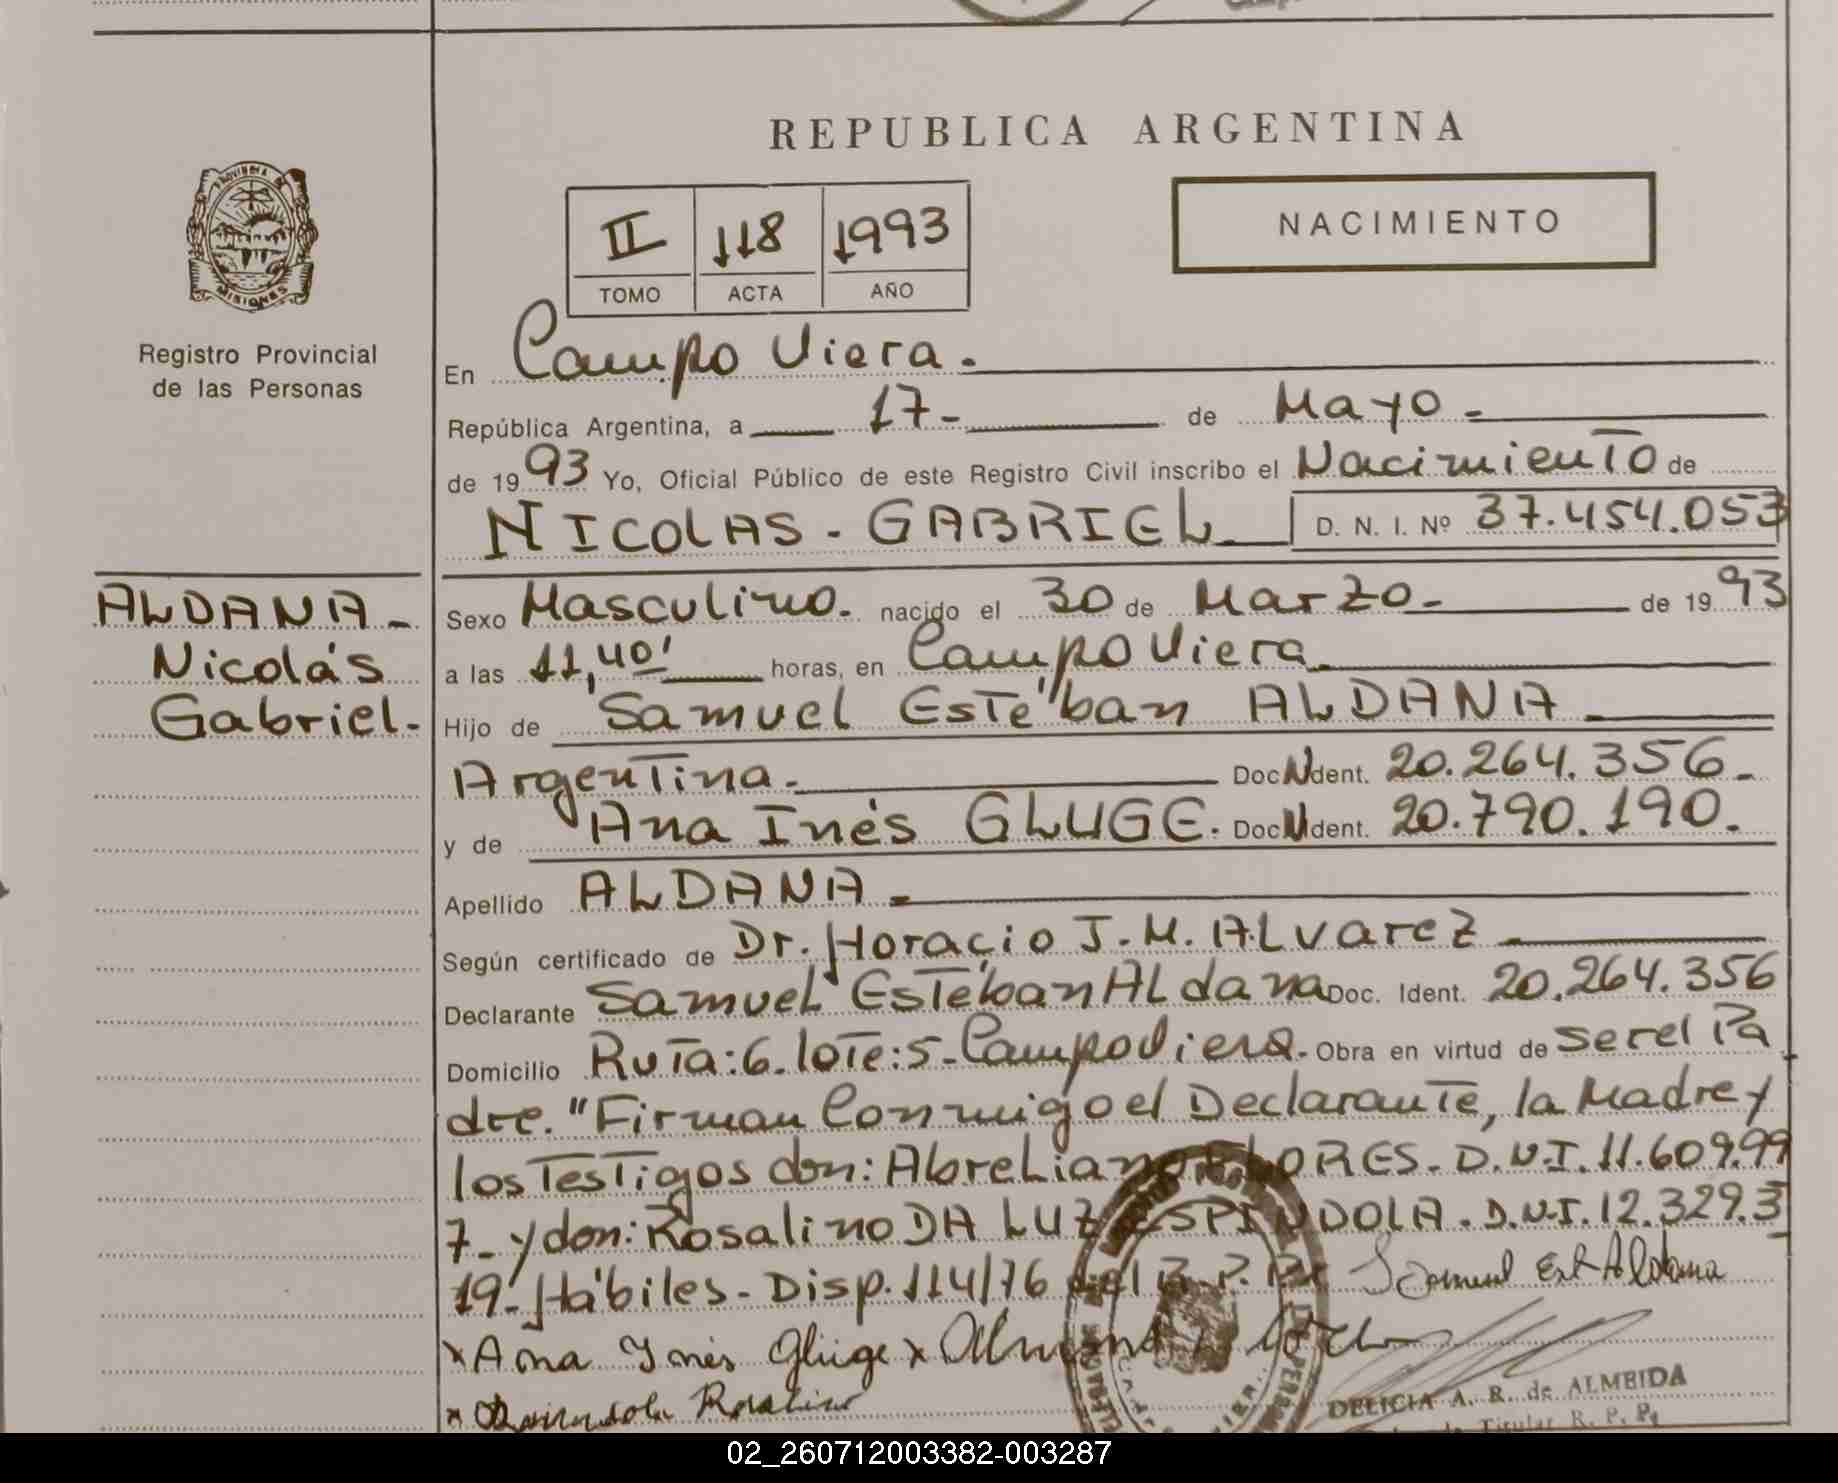 REPUBLICA ARGENTINA
II 118 1993
TOMO ACTA AÑO
NACIMIENTO
PROVINCIA DE
MISIONES
Registro Provincial
de las Personas
En Campo Viera.
República Argentina, a 17- de Mayo-
de 1993 Yo, Oficial Público de este Registro Civil inscribo el Nacimiento de
NICOLAS - GABRIEL D. N. I. Nº 37.454.053
ALDANA-
Nicolás
Gabriel-
Sexo Masculino. nacido el 30 de Marzo- de 1993
a las 11,40' horas, en Campo Viera
Hijo de Samuel Estéban ALDANA
Argentina. Doc N Ident. 20.264.356-
y de Ana Inés GLUGE. Doc N Ident. 20.790.190.
Apellido ALDANA-
Según certificado de Dr. Horacio J. M. ALvarez
Declarante Samuel Estéban ALdana Doc. Ident. 20.264.356
Domicilio Ruta:6.lote:5-Campo Viera. Obra en virtud de ser el Pa
dre. "Firman Conmigo el Declarante, la Madre y
los Testigos don: Abreliano FLORES. D.N.I. 11.609.99
7- y don: Rosalino DA LUZ ESPINDOLA. D.N.I. 12.329.3
19- Hábiles- Disp. 114/76 del R. P. P. Samuel Est Aldana
x Ana Ynés Glüge x
x Rosalino
DELICIA A. R. de ALMEIDA
Titular R. P. P.
02_260712003382-003287